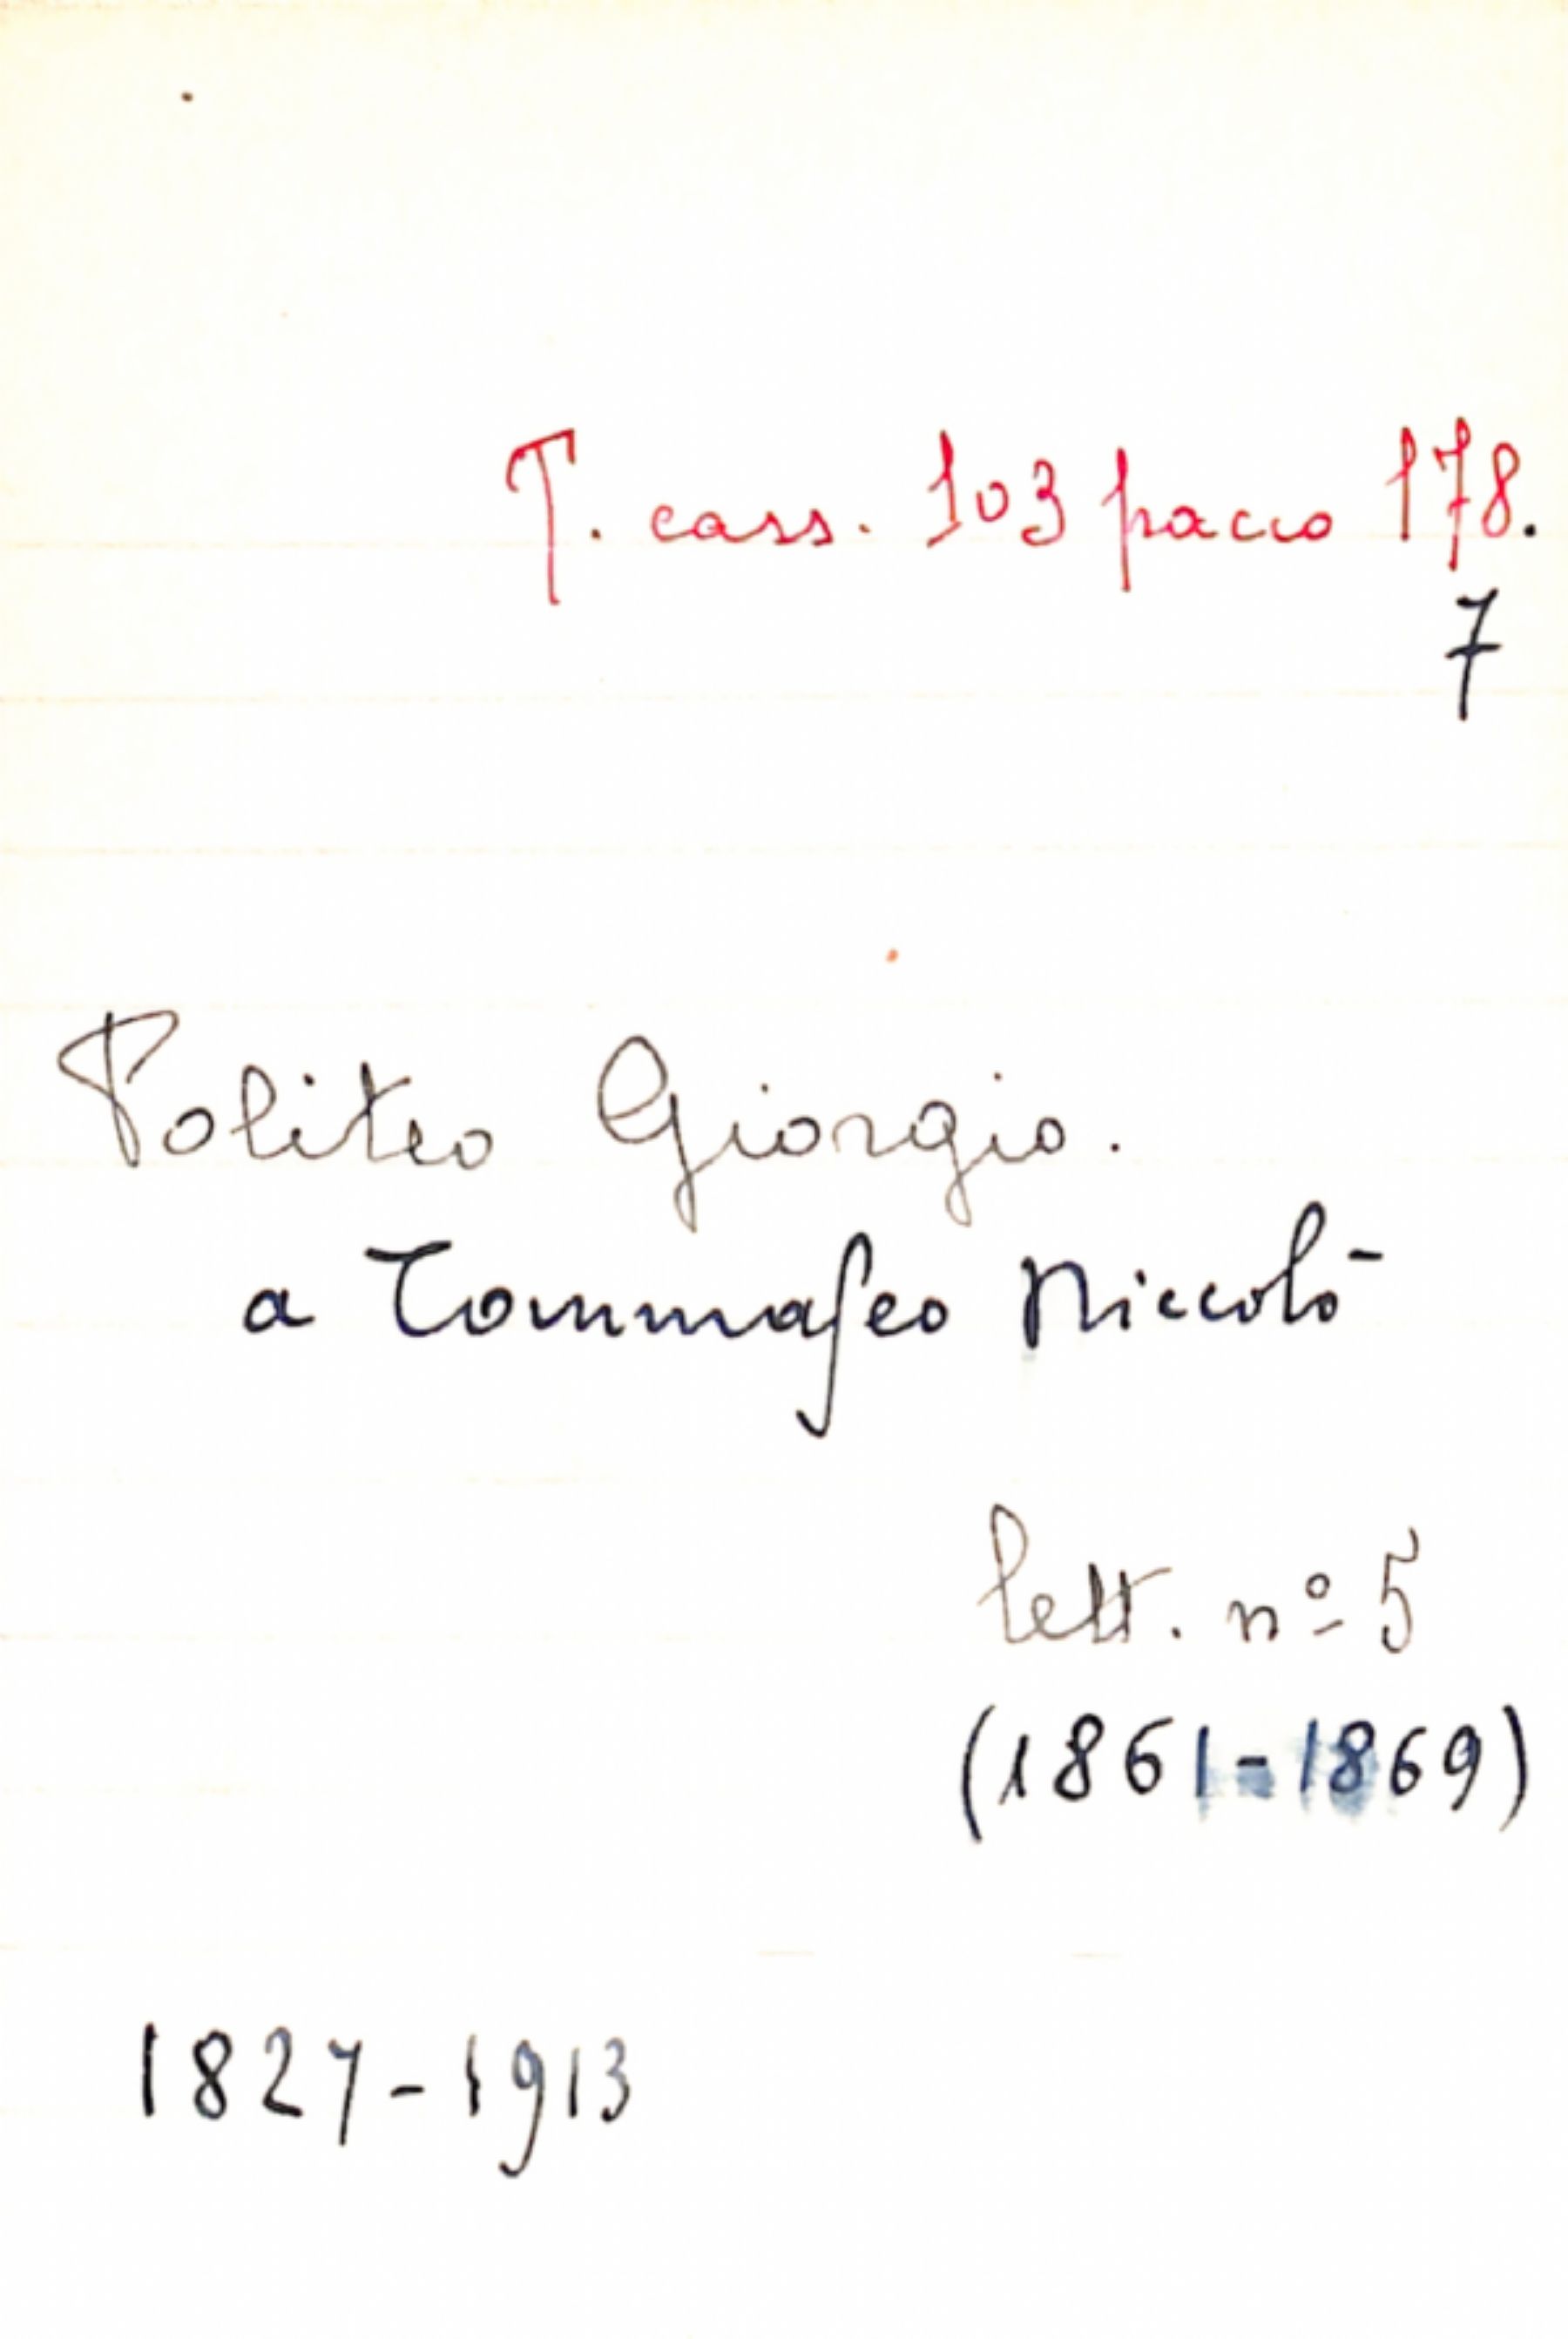 T. cass. 103 pacco 178.
7
Politeo Giorgio.
a Tommaseo Niccolò
lett. nº 5
(1861-1869)
1827-1913